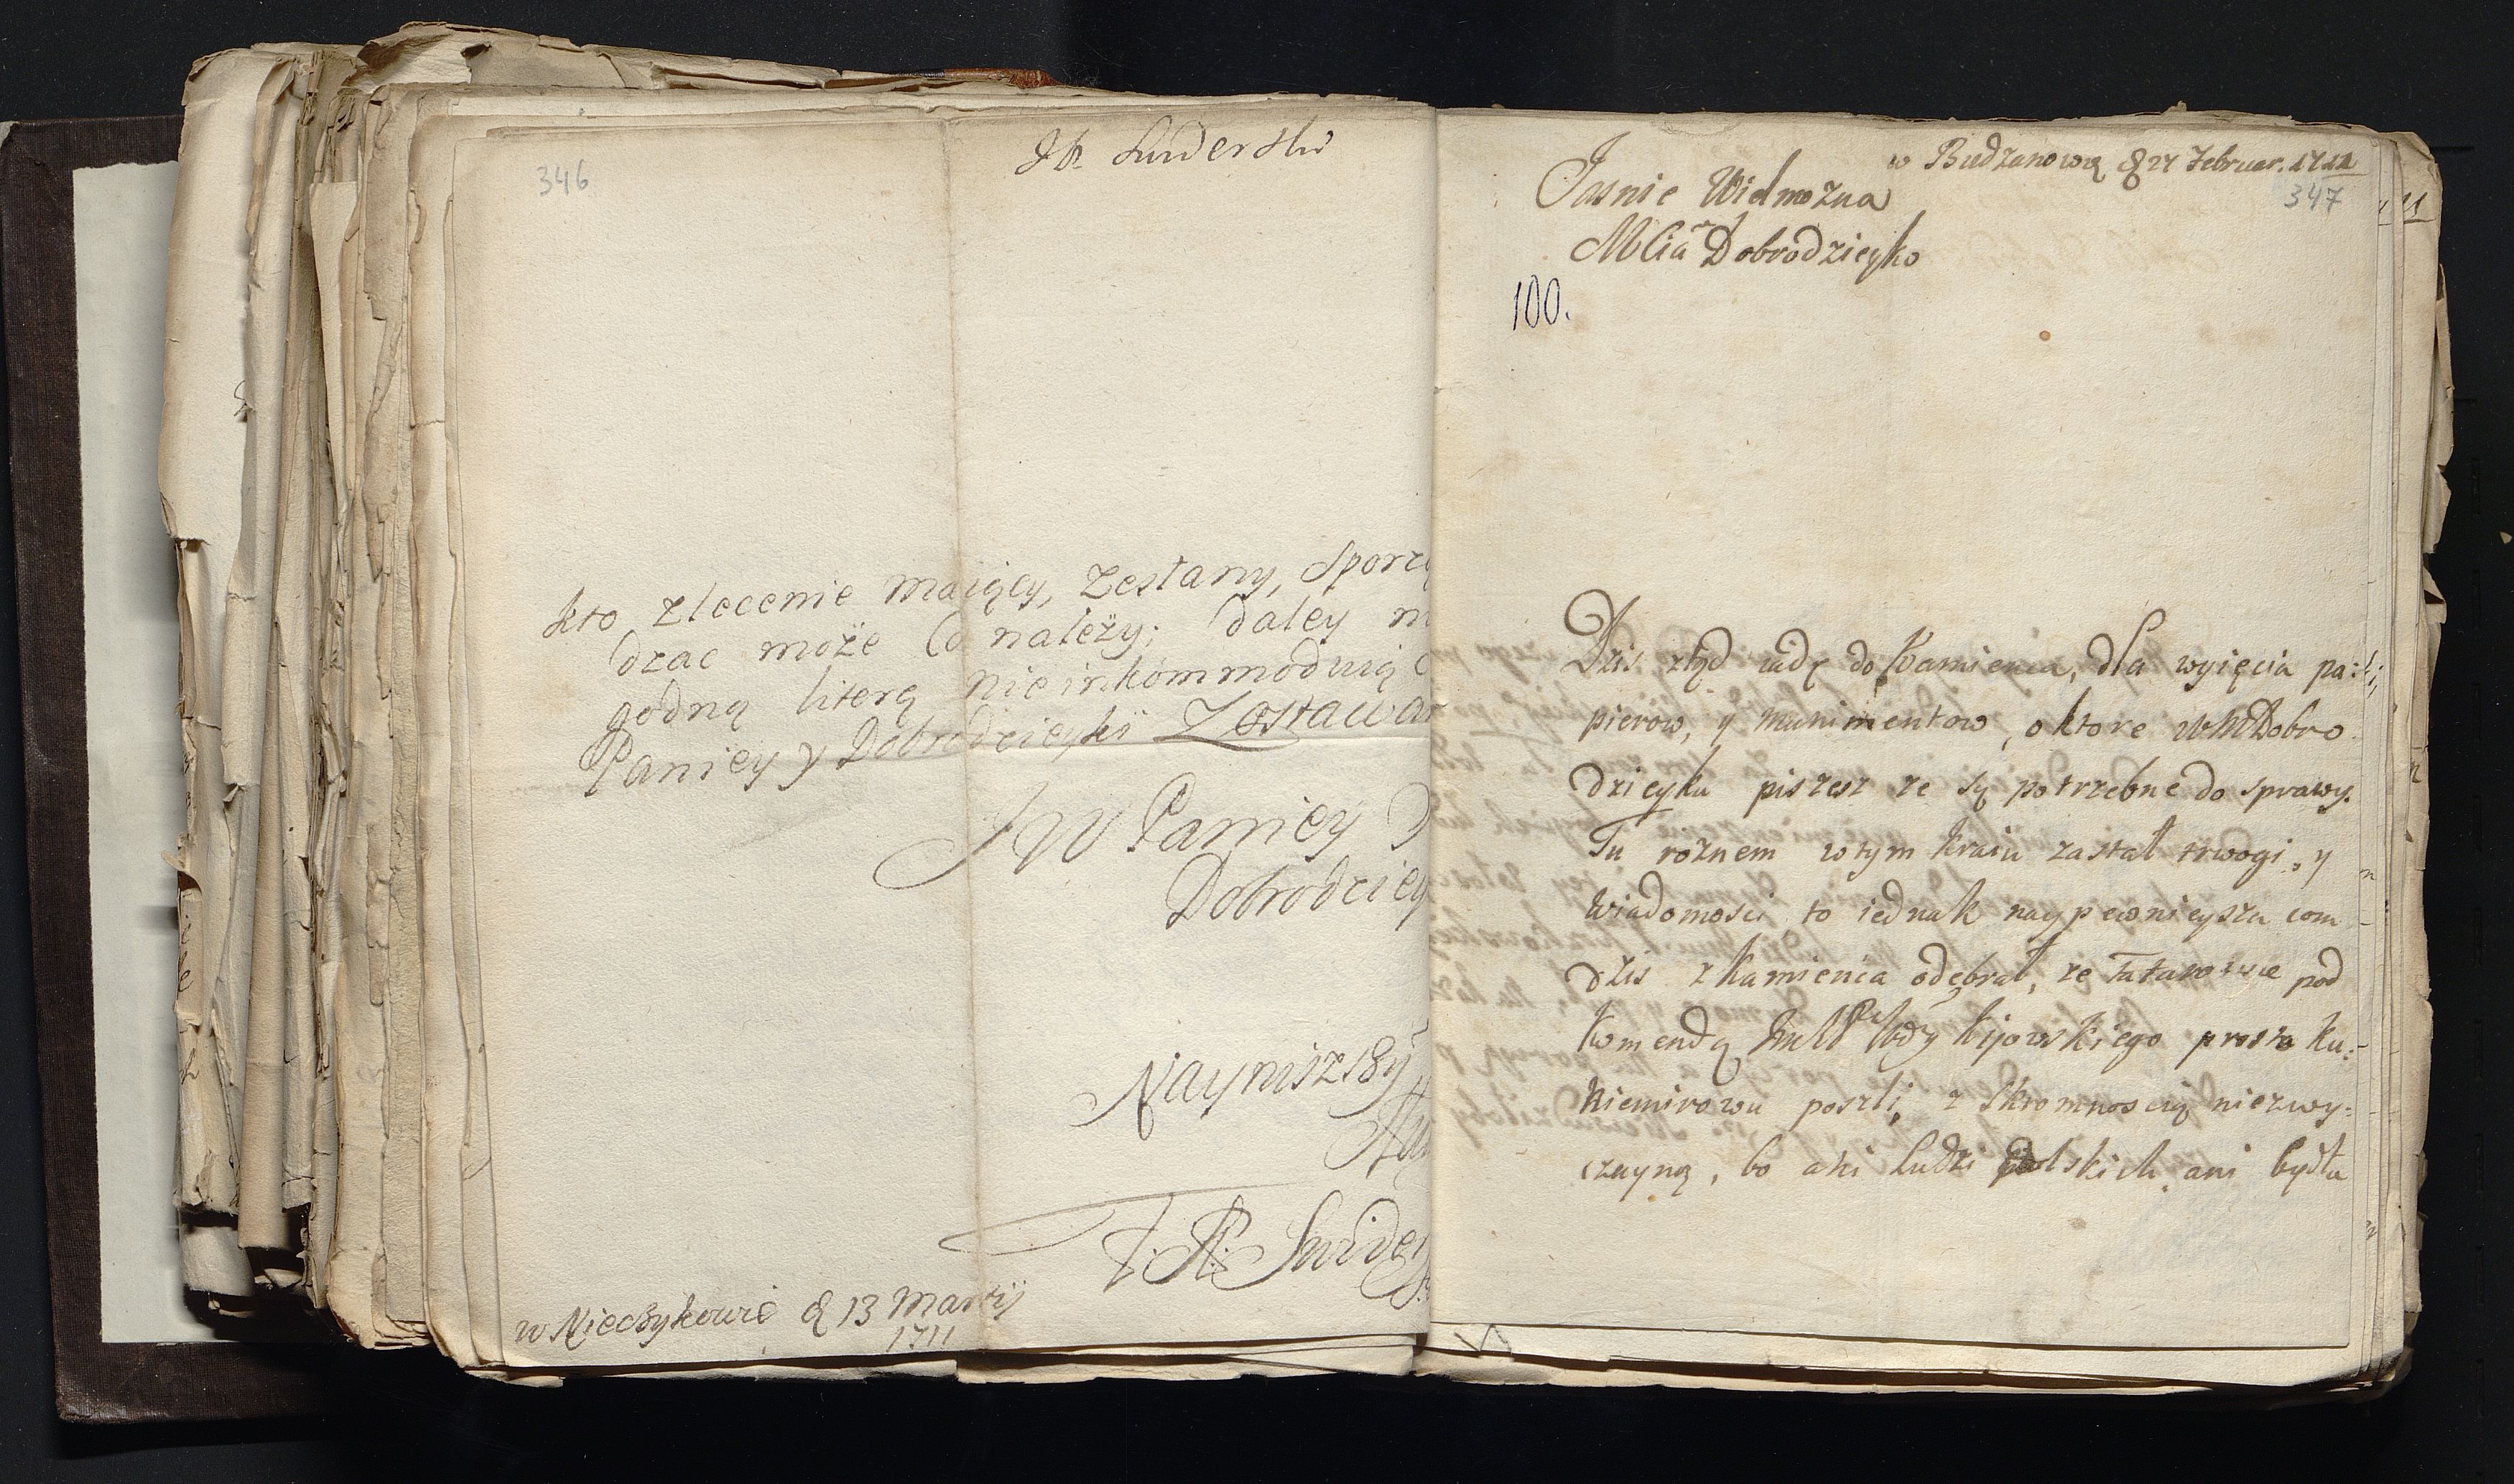 346
kto zlecenie maiący, zesłany, sporzą
dzac może Co należy; daley n
godną literą nie inkommoduią
Paniey y Dobrodzieyki Zostawa
JW Paniey
Dobrodziey
Nayniszszy
w Niechykowie d 13 Martij
1711
w Budzanową d 27 Februar. 1711
347
Jasnie Wielmozna
MCia Dobrodzieyko
100.
Dzis ztąd iadę do Kamienca, dla wyięcia pa:
pierow, y munimentow, o ktore WM Dobro
dzieyka piszesz ze są potrzebne do sprawy.
Tu roznem w tym kraiu zastał trwogi, y
wiadomosci, to iednak naypewnieysza com
dzis z Kamienca odebrał, ze Tatarowie pod
Komendą Kijowskiego prosto ku:
Niemirowu poszli, z skromnoscią niezwy:
czayną, bo ani ludzi Polskich, ani bydła